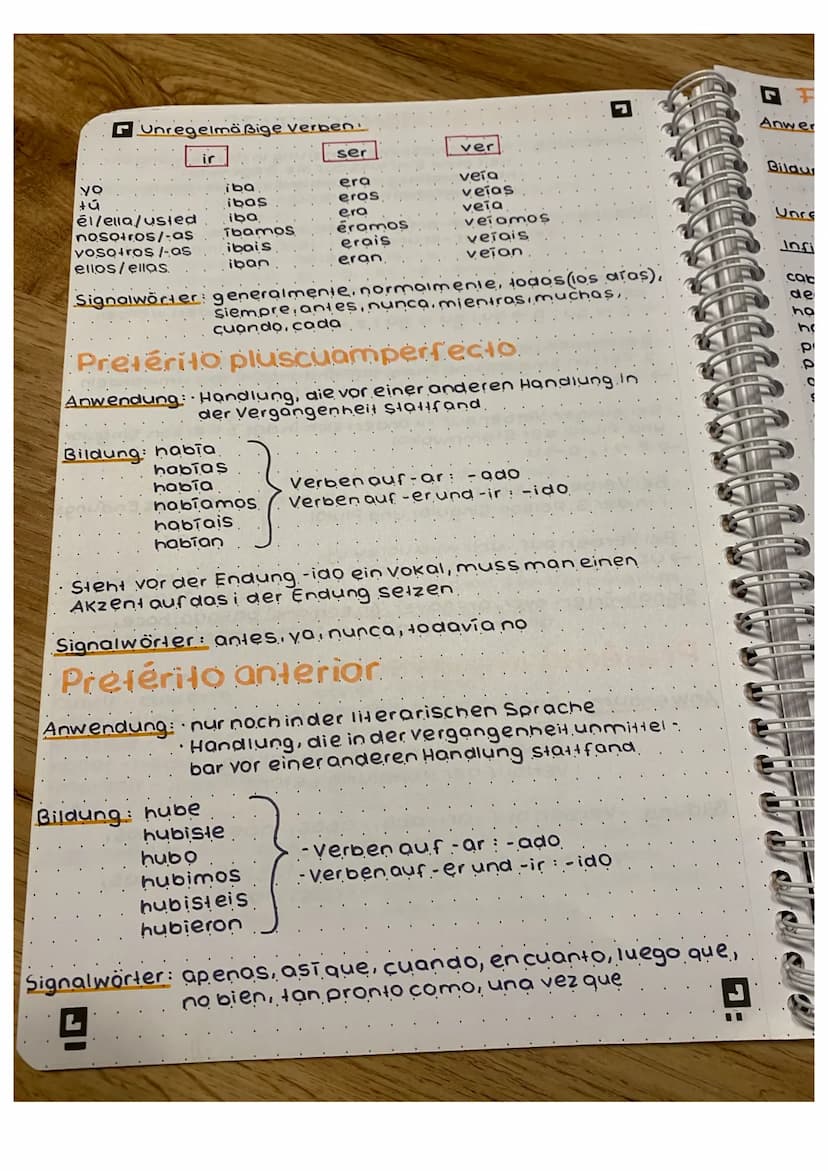 Unregelmäßige Verben:
ir ser ver
yo iba era veía
tú ibas eras veías
él/ella/usted iba era veía
nosotros/-as íbamos éramos veíamos
vosotros/-as ibais erais veíais
ellos/ellas iban eran veían
Signalwörter: generalmente, normalmente, todos (los días),
siempre, antes, nunca, mientras, muchas,
cuando, cada
Pretérito pluscuamperfecto
Anwendung: · Handlung, die vor einer anderen Handlung in
der Vergangenheit stattfand
Bildung: había
habías
había
habíamos
habíais
habían
Verben auf -ar: -ado
Verben auf -er und -ir: -ido
· Steht vor der Endung -ido ein Vokal, muss man einen
Akzent auf das i der Endung setzen
Signalwörter: antes, ya, nunca, todavía no
Pretérito anterior
Anwendung: · nur noch in der literarischen Sprache
· Handlung, die in der Vergangenheit unmittel-
bar vor einer anderen Handlung stattfand
Bildung: hube
hubiste
hubo
hubimos
hubisteis
hubieron
- Verben auf -ar: -ado
- Verben auf -er und -ir: -ido
Signalwörter: apenas, así que, cuando, en cuanto, luego que,
no bien, tan pronto como, una vez que
F
Anwer
Bildu
Unre
Infi
cab
de